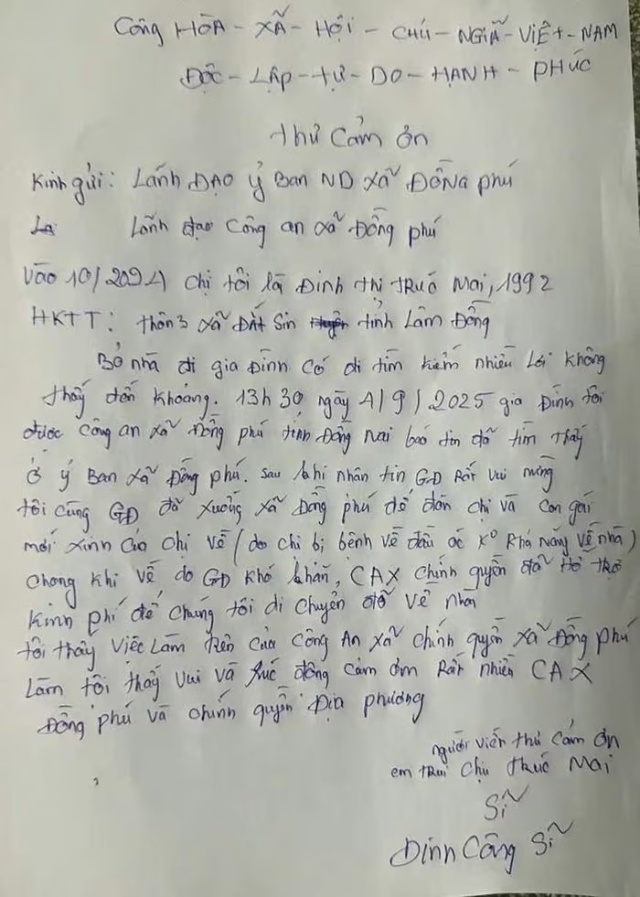 Công HÒA - XÃ - HỘI - CHÚ - NGIÃ - VIỆT - NAM
ĐỘC - LẬP - TỰ - DO - HẠNH - PHÚC
Thư Cảm ơn
Kính gửi: Lãnh ĐẠO ỷ Ban ND xã ĐỒNG phú
Lãnh đạo Công an xã Đồng phú
Vào 10/2024 Chị tôi là Đinh thị TRúc Mai, 1992
HKTT: thôn 3 xã ĐẤT Sin tỉnh Lâm Đồng
Bỏ nhà đi gia Đình có đi tìm kiếm nhiều Lới không
thấy đến khoảng. 13h 30 ngày 4/9/2025 gia Đình tôi
được Công an xã Đồng phú tỉnh Đồng Nai báo tin đã tìm thấy
ở ỷ Ban xã Đồng phú. sau khi nhân tin GĐ Rất vui mừng
tôi cùng GĐ đã xuống xã Đồng phú để đón chị và con gái
mới xinh của chị về (do chị bị bệnh về đầu óc Kº Khả năng về nhà)
Chong khi về do GĐ khó khăn, CAX Chính quyền đã Hổ trợ
Kinh phí để chúng tôi di chuyển về nhà
tôi thấy việc Làm trên của Công An xã chính quyền xã Đồng phú
Làm tôi thấy vui và xúc động cảm ơn Rất nhiên CAX
Đồng phú và chính quyền Địa phương
người viết thư cảm ơn
em trai Chị thúc Mai
Sĩ
Đinh Công Sĩ